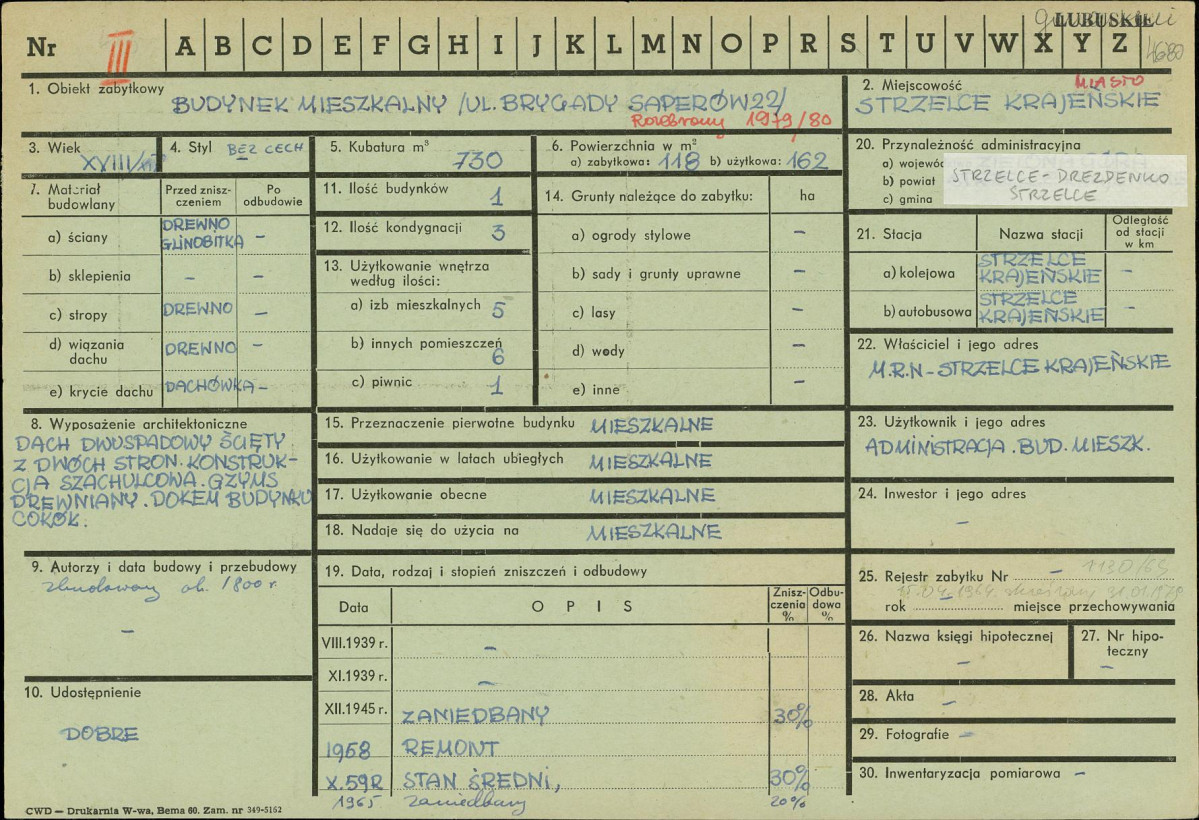 LUBUSKIE
Nr III A B C D E F G H I J K L M N O P R S T U V W X Y Z 4680
1. Obiekt zabytkowy
BUDYNEK MIESZKALNY /UL. BRYGADY SAPERÓW 22/
Rozebrany 1979/80
2. Miejscowość MIASTO
STRZELCE KRAJEŃSKIE
3. Wiek
XVIII/XIX
4. Styl BEZ CECH
5. Kubatura m³
730
6. Powierzchnia w m²
a) zabytkowa: 118 b) użytkowa: 162
20. Przynależność administracyjna
a) wojewó
b) powiat
c) gmina
STRZELCE-DREZDENKO
STRZELCE
7. Materiał budowlany
Przed zniszczeniem
Po odbudowie
a) ściany DREWNO GLINOBITKA –
b) sklepienia – –
c) stropy DREWNO –
d) wiązania dachu DREWNO –
e) krycie dachu DACHÓWKA –
11. Ilość budynków 1
12. Ilość kondygnacji 3
13. Użytkowanie wnętrza według ilości:
a) izb mieszkalnych 5
b) innych pomieszczeń 6
c) piwnic 1
14. Grunty należące do zabytku: ha
a) ogrody stylowe –
b) sady i grunty uprawne –
c) lasy –
d) wody –
e) inne –
21. Stacja
Nazwa stacji
Odległość od stacji w km
a) kolejowa STRZELCE KRAJEŃSKIE –
b) autobusowa STRZELCE KRAJEŃSKIE –
22. Właściciel i jego adres
M.R.N - STRZELCE KRAJEŃSKIE
8. Wyposażenie architektoniczne
DACH DWUSPADOWY ŚCIĘTY
Z DWÓCH STRON. KONSTRUK-
CJA SZACHULCOWA. GZYMS
DREWNIANY. DOKEM BUDYNKU
COKÓŁ.
15. Przeznaczenie pierwotne budynku MIESZKALNE
16. Użytkowanie w latach ubiegłych MIESZKALNE
17. Użytkowanie obecne MIESZKALNE
18. Nadaje się do użycia na MIESZKALNE
23. Użytkownik i jego adres
ADMINISTRACJA. BUD. MIESZK.
24. Inwestor i jego adres
–
9. Autorzy i data budowy i przebudowy
zbudowany ok. 1800 r.
–
19. Data, rodzaj i stopień zniszczeń i odbudowy
Data OPIS Zniszczenia % Odbudowa %
VIII.1939 r. –
XI.1939 r. –
XII.1945 r. ZANIEDBANY 30%
1958 REMONT
X.59R STAN ŚREDNI, 30%
1965 zaniedbany 20%
25. Rejestr zabytku Nr – 1130/65
15.04.1964. skreślony 31.01.1979
rok – miejsce przechowywania
26. Nazwa księgi hipotecznej
–
27. Nr hipoteczny
–
10. Udostępnienie
DOBRE
28. Akta –
29. Fotografie –
30. Inwentaryzacja pomiarowa –
CWD — Drukarnia W-wa, Bema 60. Zam. nr 349-5162